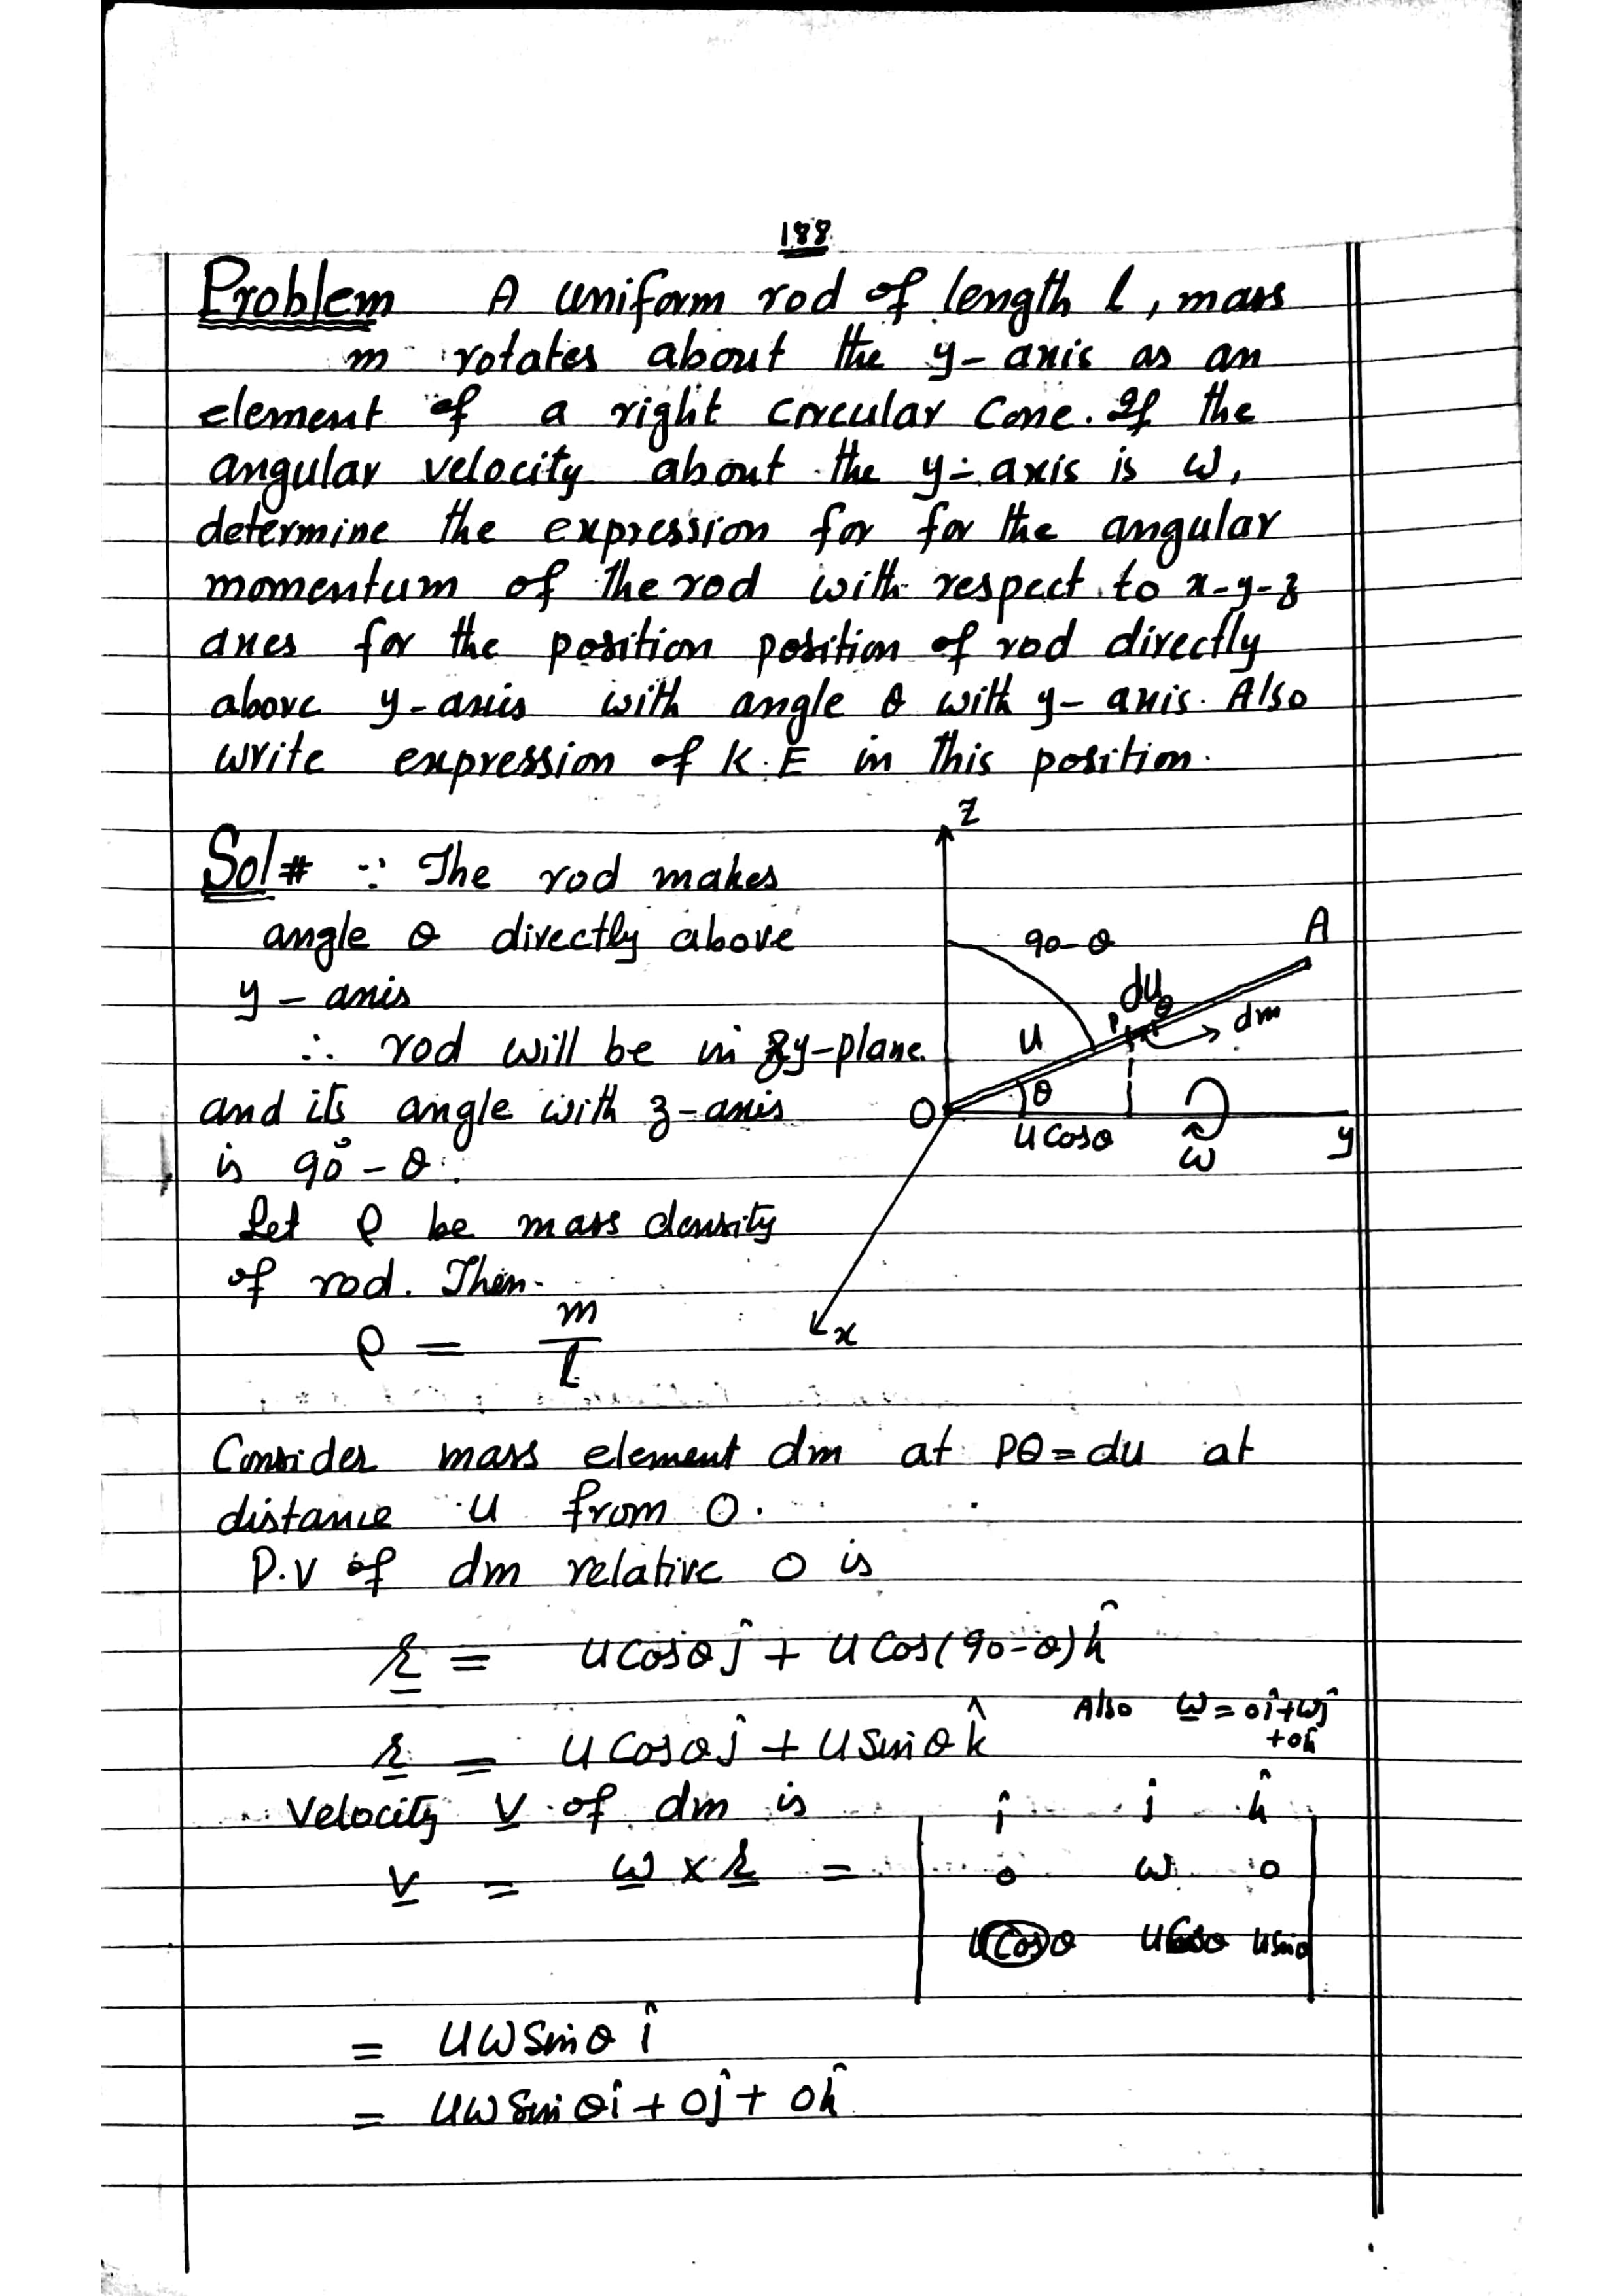 188
Problem A uniform rod of length l, mass
m rotates about the y-axis as an
element of a right circular cone. If the
angular velocity about the y-axis is ω,
determine the expression for for the angular
momentum of the rod with respect to x-y-z
axes for the position position of rod directly
above y-axis with angle θ with y-axis. Also
write expression of K.E in this position.
Sol# ∵ The rod makes
angle θ directly above
y-axis
∴ rod will be in zy-plane.
and its angle with z-axis
is 90°-θ.
Let ρ be mass density
of rod. Then
ρ = m/l
z
90-θ
A
du
P
Q
dm
u
θ
O
u Cosθ
ω
y
x
Consider mass element dm at PQ = du at
distance u from O.
P.V of dm relative O is
r = u Cosθ ĵ + u Cos(90-θ) k̂
Also ω = 0î+ωĵ
+0k̂
r = u Cosθ ĵ + u Sinθ k̂
Velocity v of dm is
î ĵ k̂
v = ω × r = 0 ω 0
uCosθ usinθ
= uω Sinθ î
= uω Sinθ î + 0ĵ + 0k̂